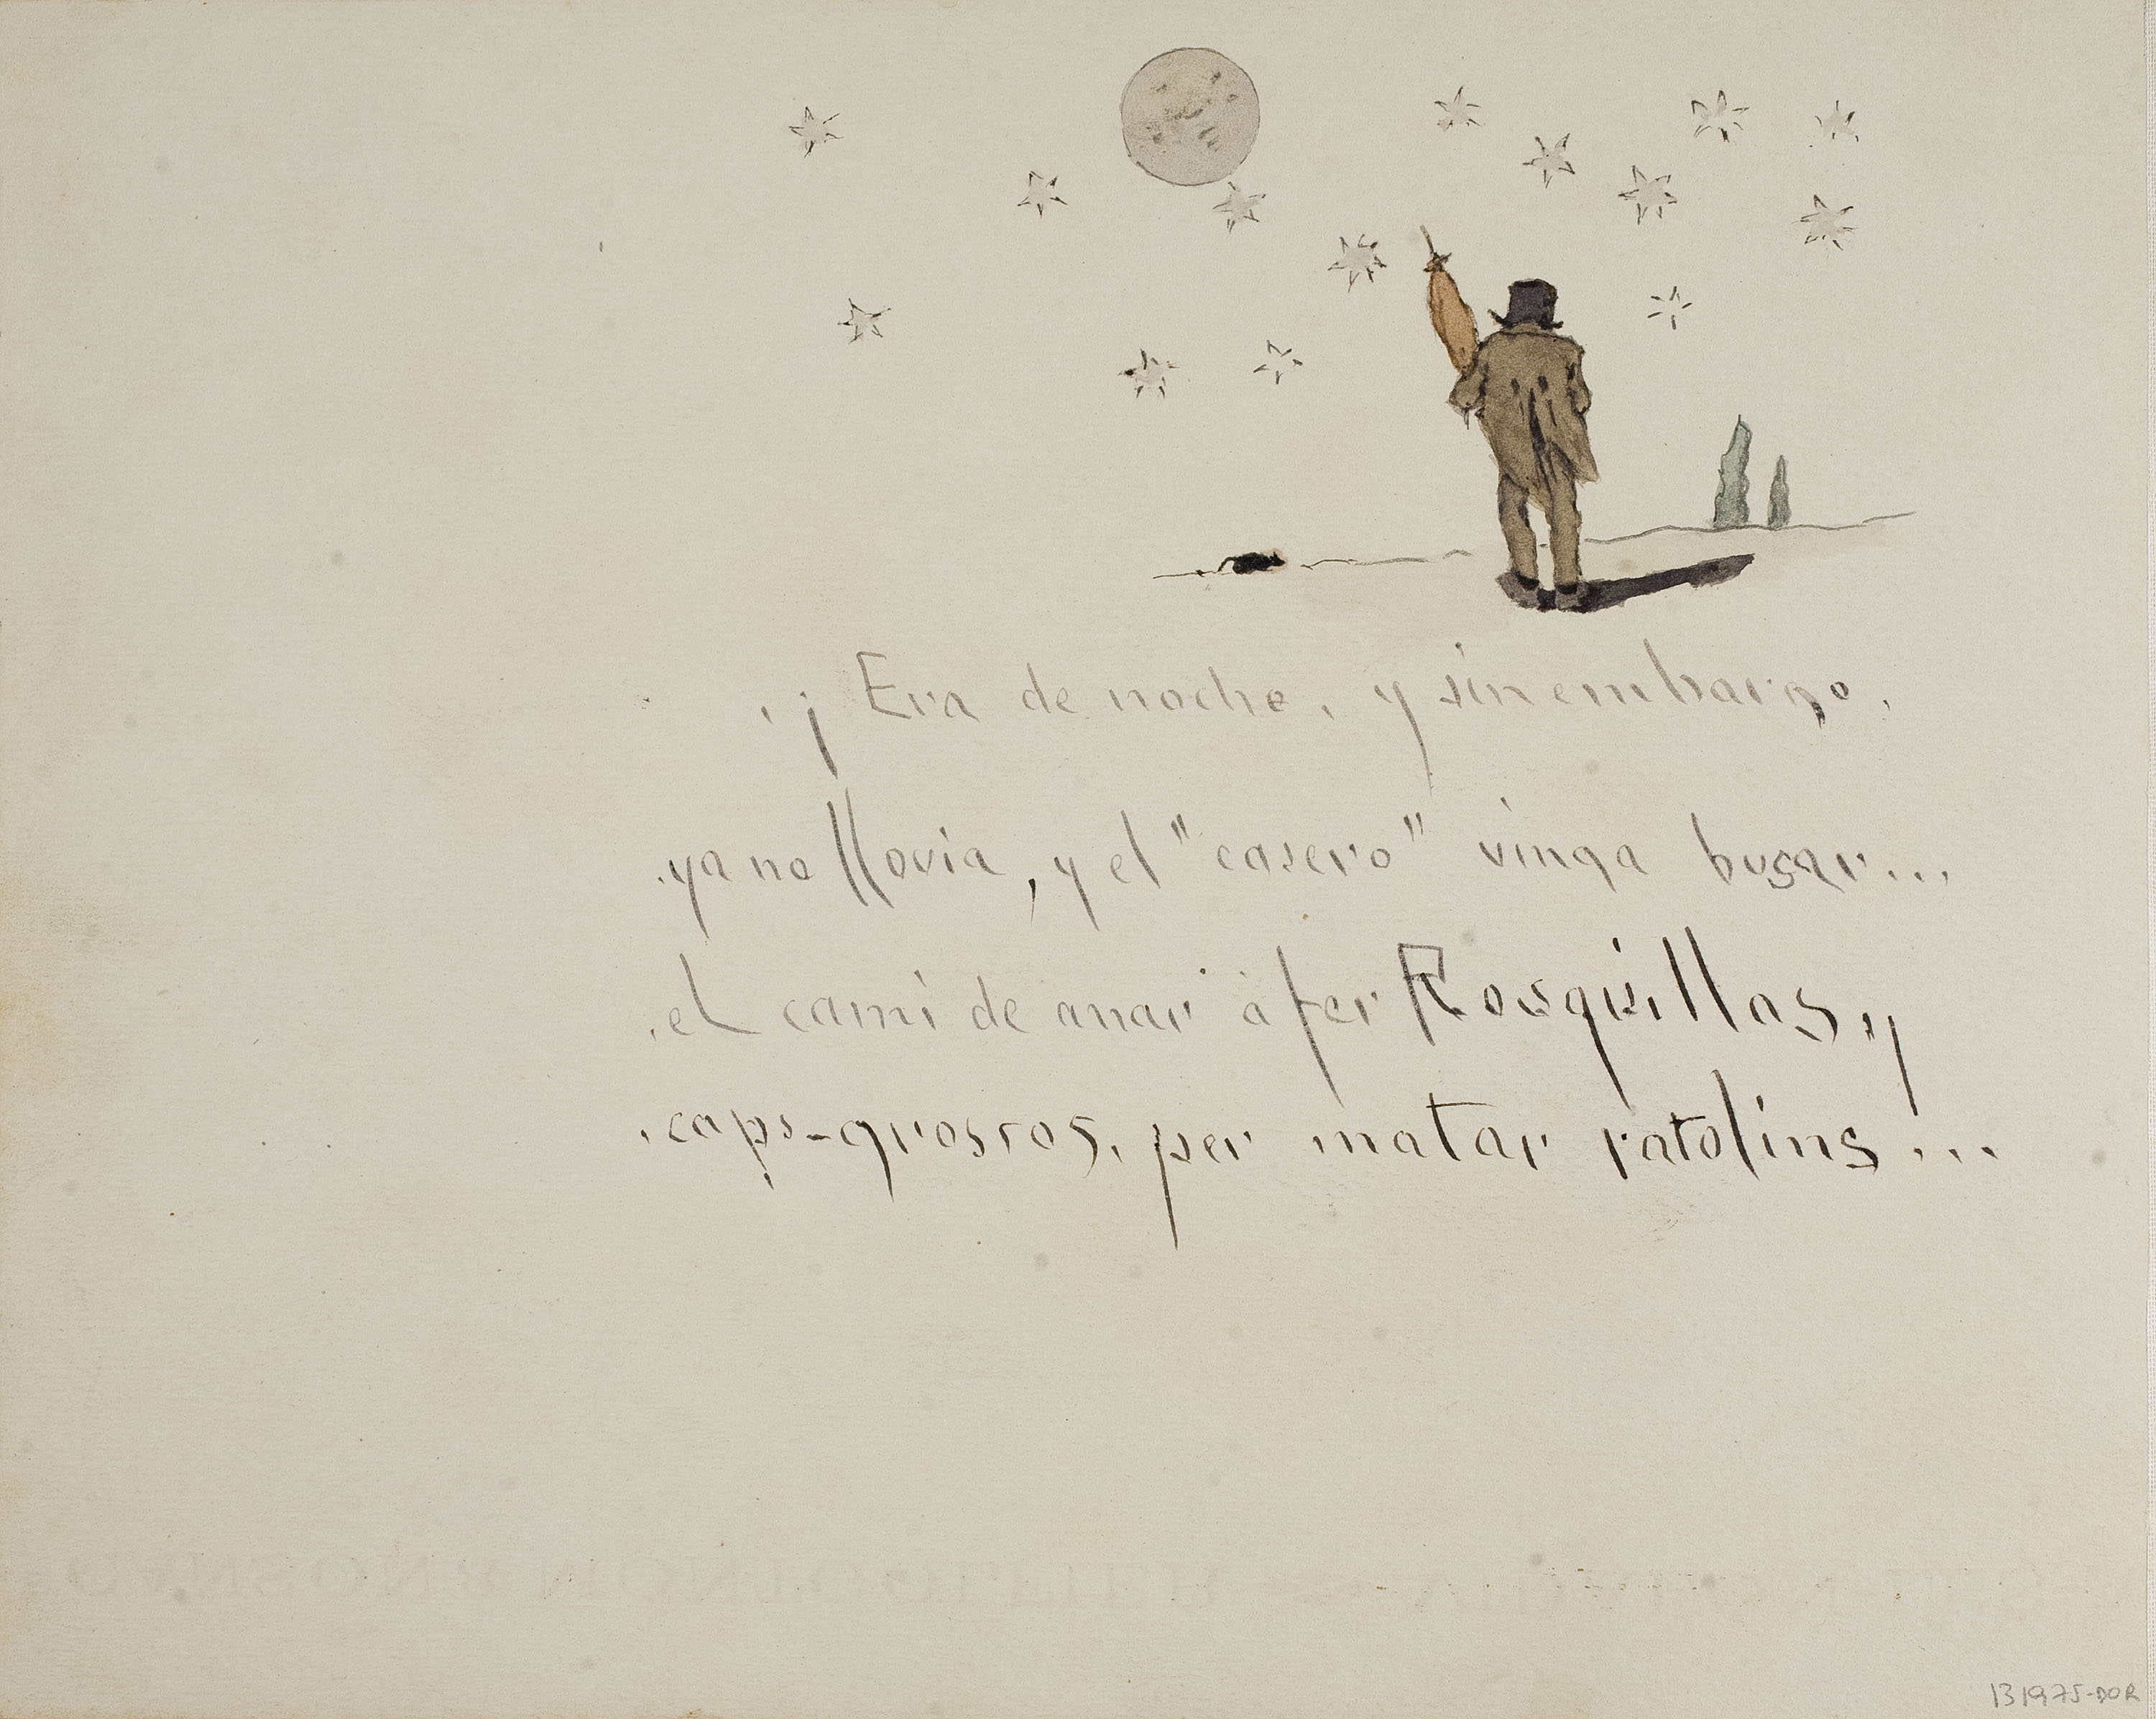 .¡ Era de noche, y sin embargo,
.ya no llovia, y el "casero" vinga busar...
.el cami de anar à fer Rosquillas, y
.caps-grossos, per matar ratolins...
131975-DOR